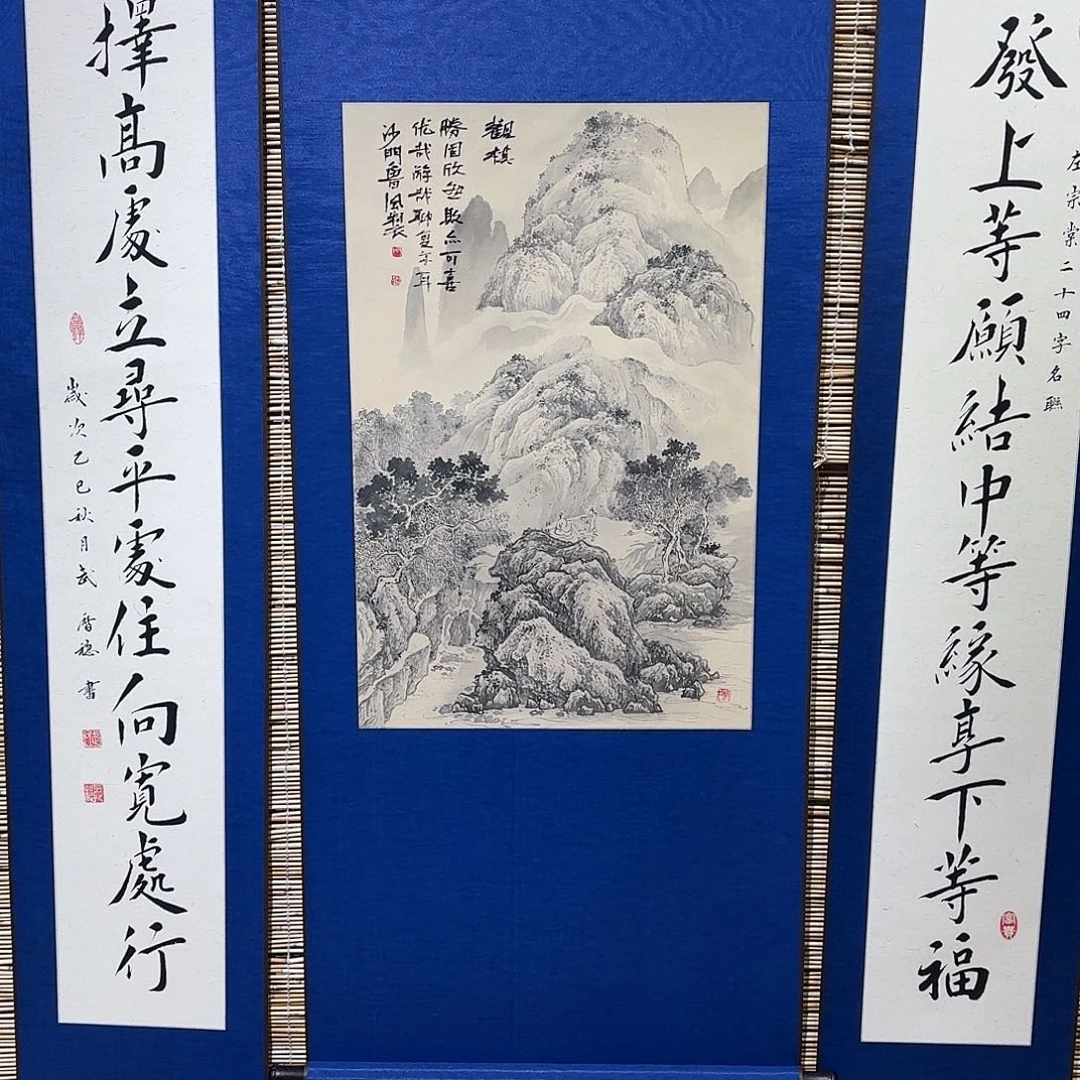 左宗棠二十四字名聯
發上等願結中等緣享下等福
觀棋
勝固欣然敗亦可喜
优哉游哉聊复尔耳
沙門魯風製
擇高處立尋平處住向寬處行
歲次乙巳秋月武 書